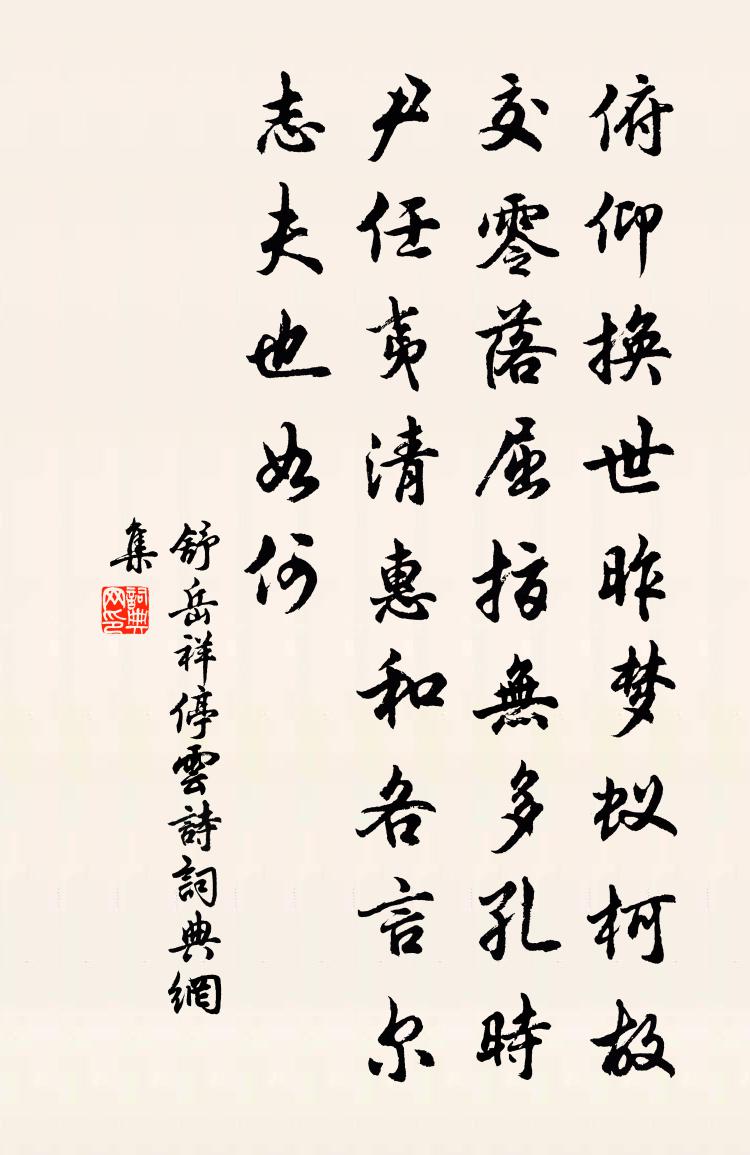 俯仰换世昨梦蚁柯故
交零落屈指無多孔時
尹任夷清惠和各言尔
志夫也如何
舒岳祥停雲詩詞典網
集
詞典网印